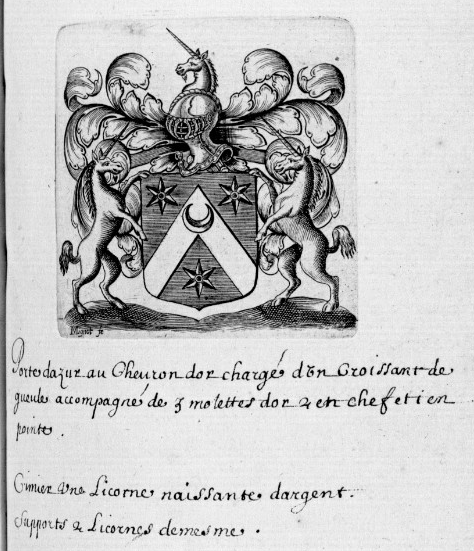 Porte dazur au Cheuron dor chargé d'ũn Croissant de
gueule accompagné de 3 molettes dor 2 en chef et i en
pointe.
Cimier Vne Licorne naissante dargent.
Supports 2 Licornes demesme.